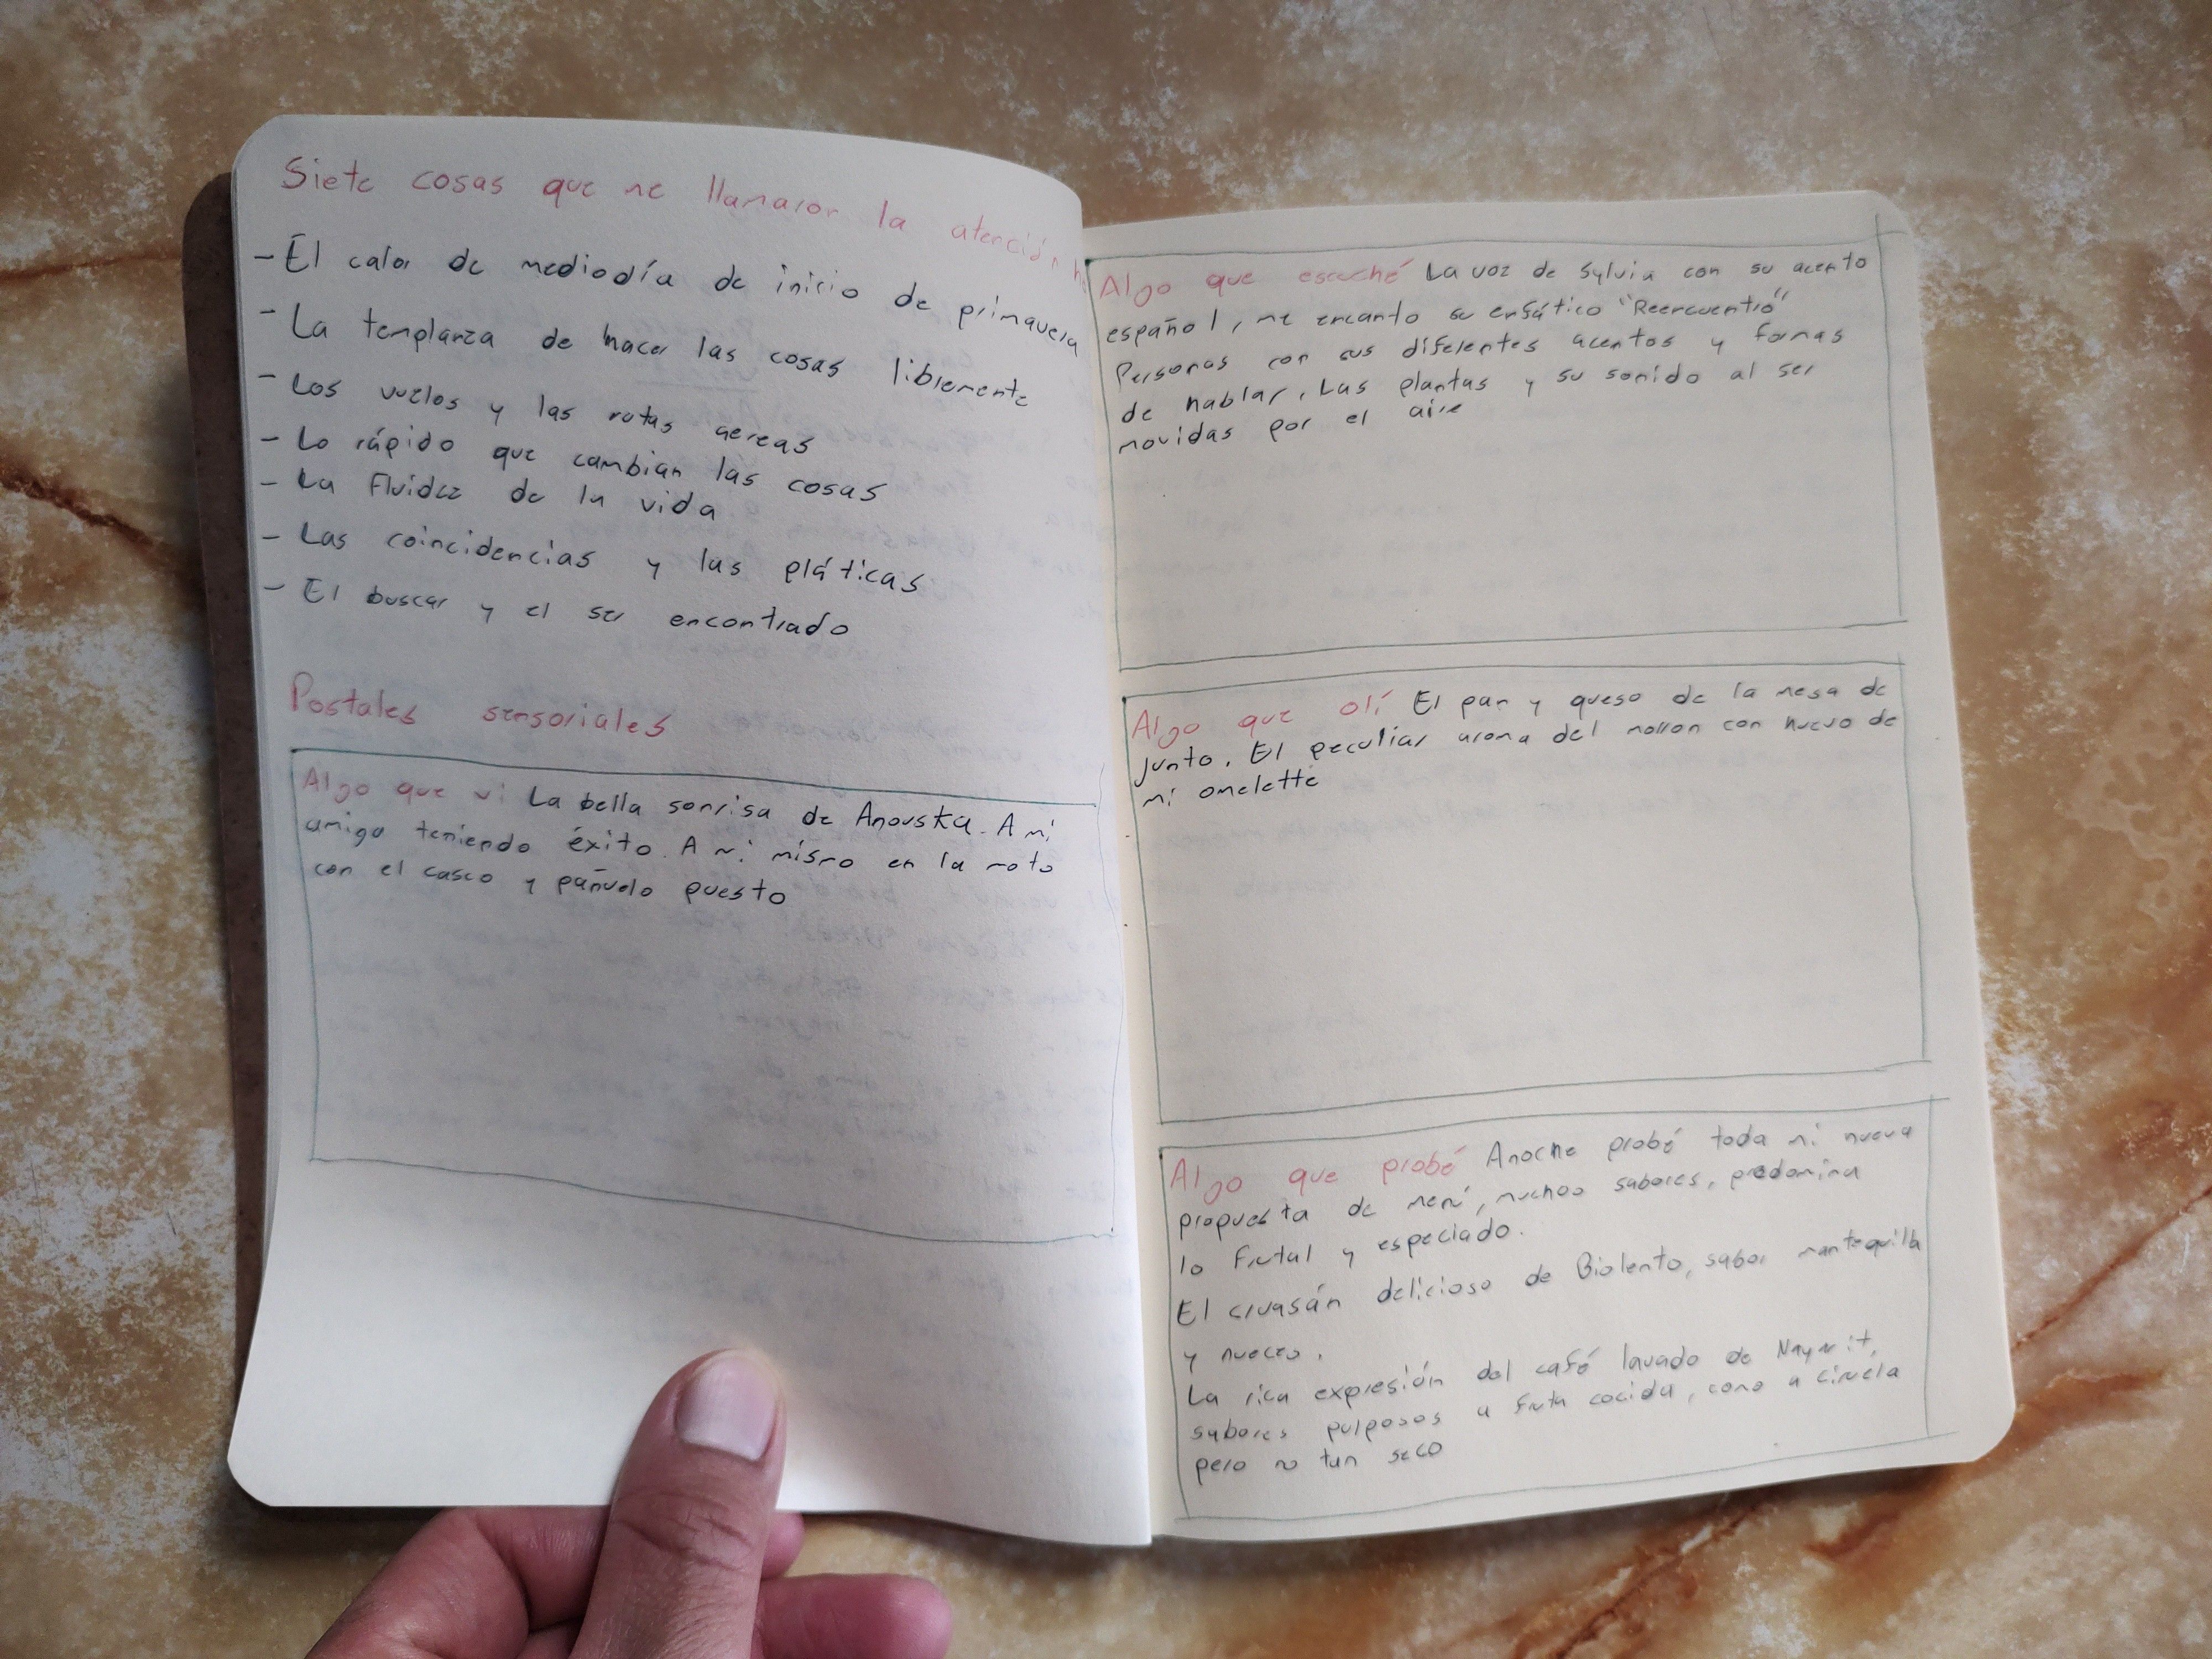 Siete cosas que me llamaron la atención
- El calor de mediodía de inicio de primavera
- La templanza de hacer las cosas libremente
- Los vuelos y las rutas aereas
- Lo rápido que cambian las cosas
- La fluidez de la vida
- Las coincidencias y las pláticas
- El buscar y el ser encontrado
Postales sensoriales
Algo que vi La bella sonrisa de Anouska. A mi
amigo teniendo éxito. A mi mismo en la moto
con el casco y pañuelo puesto
Algo que escuché La voz de Sylvia con su acento
español, me encanto su enfático "Reencuentro"
Personas con sus diferentes acentos y formas
de hablar. Las plantas y su sonido al ser
movidas por el aire
Algo que olí El pan y queso de la mesa de
junto. El peculiar aroma del morron con huevo de
mi omelette
Algo que probé Anoche probé toda mi nueva
propuesta de menú, muchos sabores, predomina
lo frutal y especiado.
El cruasán delicioso de Biolento, sabor mantequilla
y nuezes.
La rica expresión del café lavado de Nayarit,
sabores pulposos a fruta cocida, como a ciruela
pero no tan seco